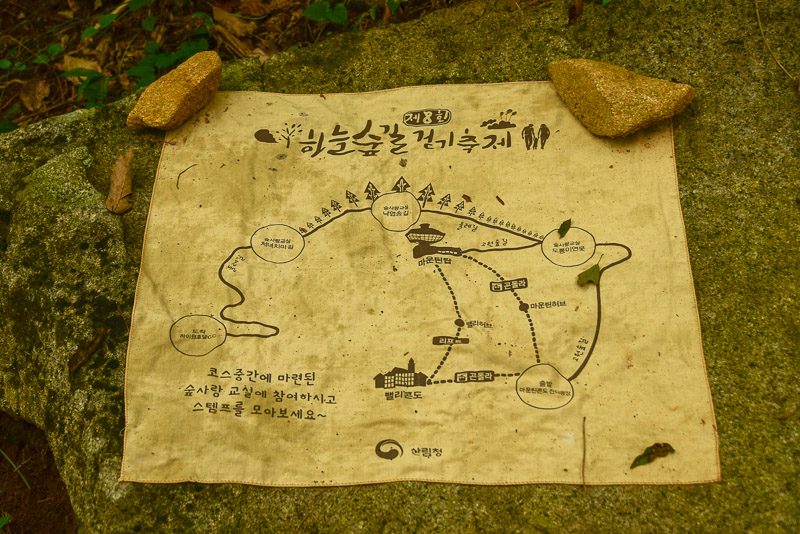 제8회
하눈숲길 걷기축제
숲사랑교실
낙엽송길
숲사랑교실
처녀치마길
둘레길
고원숲길
숲사랑교실
도롱이연못
마운틴탑
곤돌라
마운틴허브
둘레길
밸리허브
리프트
도착
하이원호텔
고원숲길
밸리콘도
곤돌라
출발
마운틴콘도 잔디광장
코스중간에 마련된
숲사랑 교실에 참여하시고
스템프를 모아보세요~
산림청